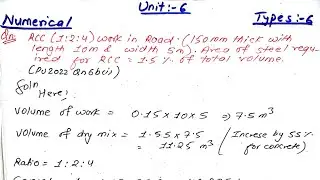 Unit:-6
Numerical
Types:-6
Qn. RCC (1:2:4) work in Road. (150mm thick with
length 10m & width 5m). Area of steel requ-
ired for RCC = 1.5 % of total volume.
(PU2022 Qn6bii)
Soln
Here;
volume of work = 0.15×10×5 = 7.5 m³
volume of dry mix = 1.55×7.5 (Increse by 55%
= 11.25 m³ for concrete)
Ratio = 1:2:4